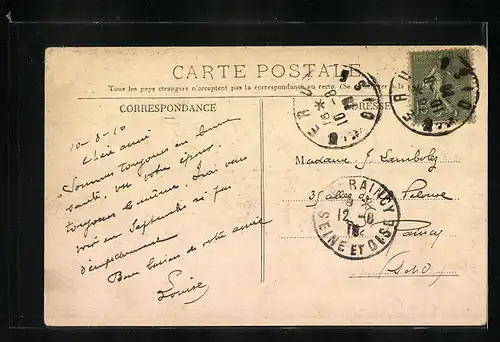 CARTE POSTALE
Tous les pays étrangers n'acceptent pas la correspondance au recto. (Se
CORRESPONDANCE
ADRESSE
10-8-10
Chère amie
Sommes toujours en bonne
santé,
toujours le même. J'irai vous
voir en Septembre si pas
d'empêchement
Bons baisers de votre amie
Louise
MERU
OISE
Madame J.
35 allée de
Raincy
S et O
RAINCY
12-8
SEINE ET OISE